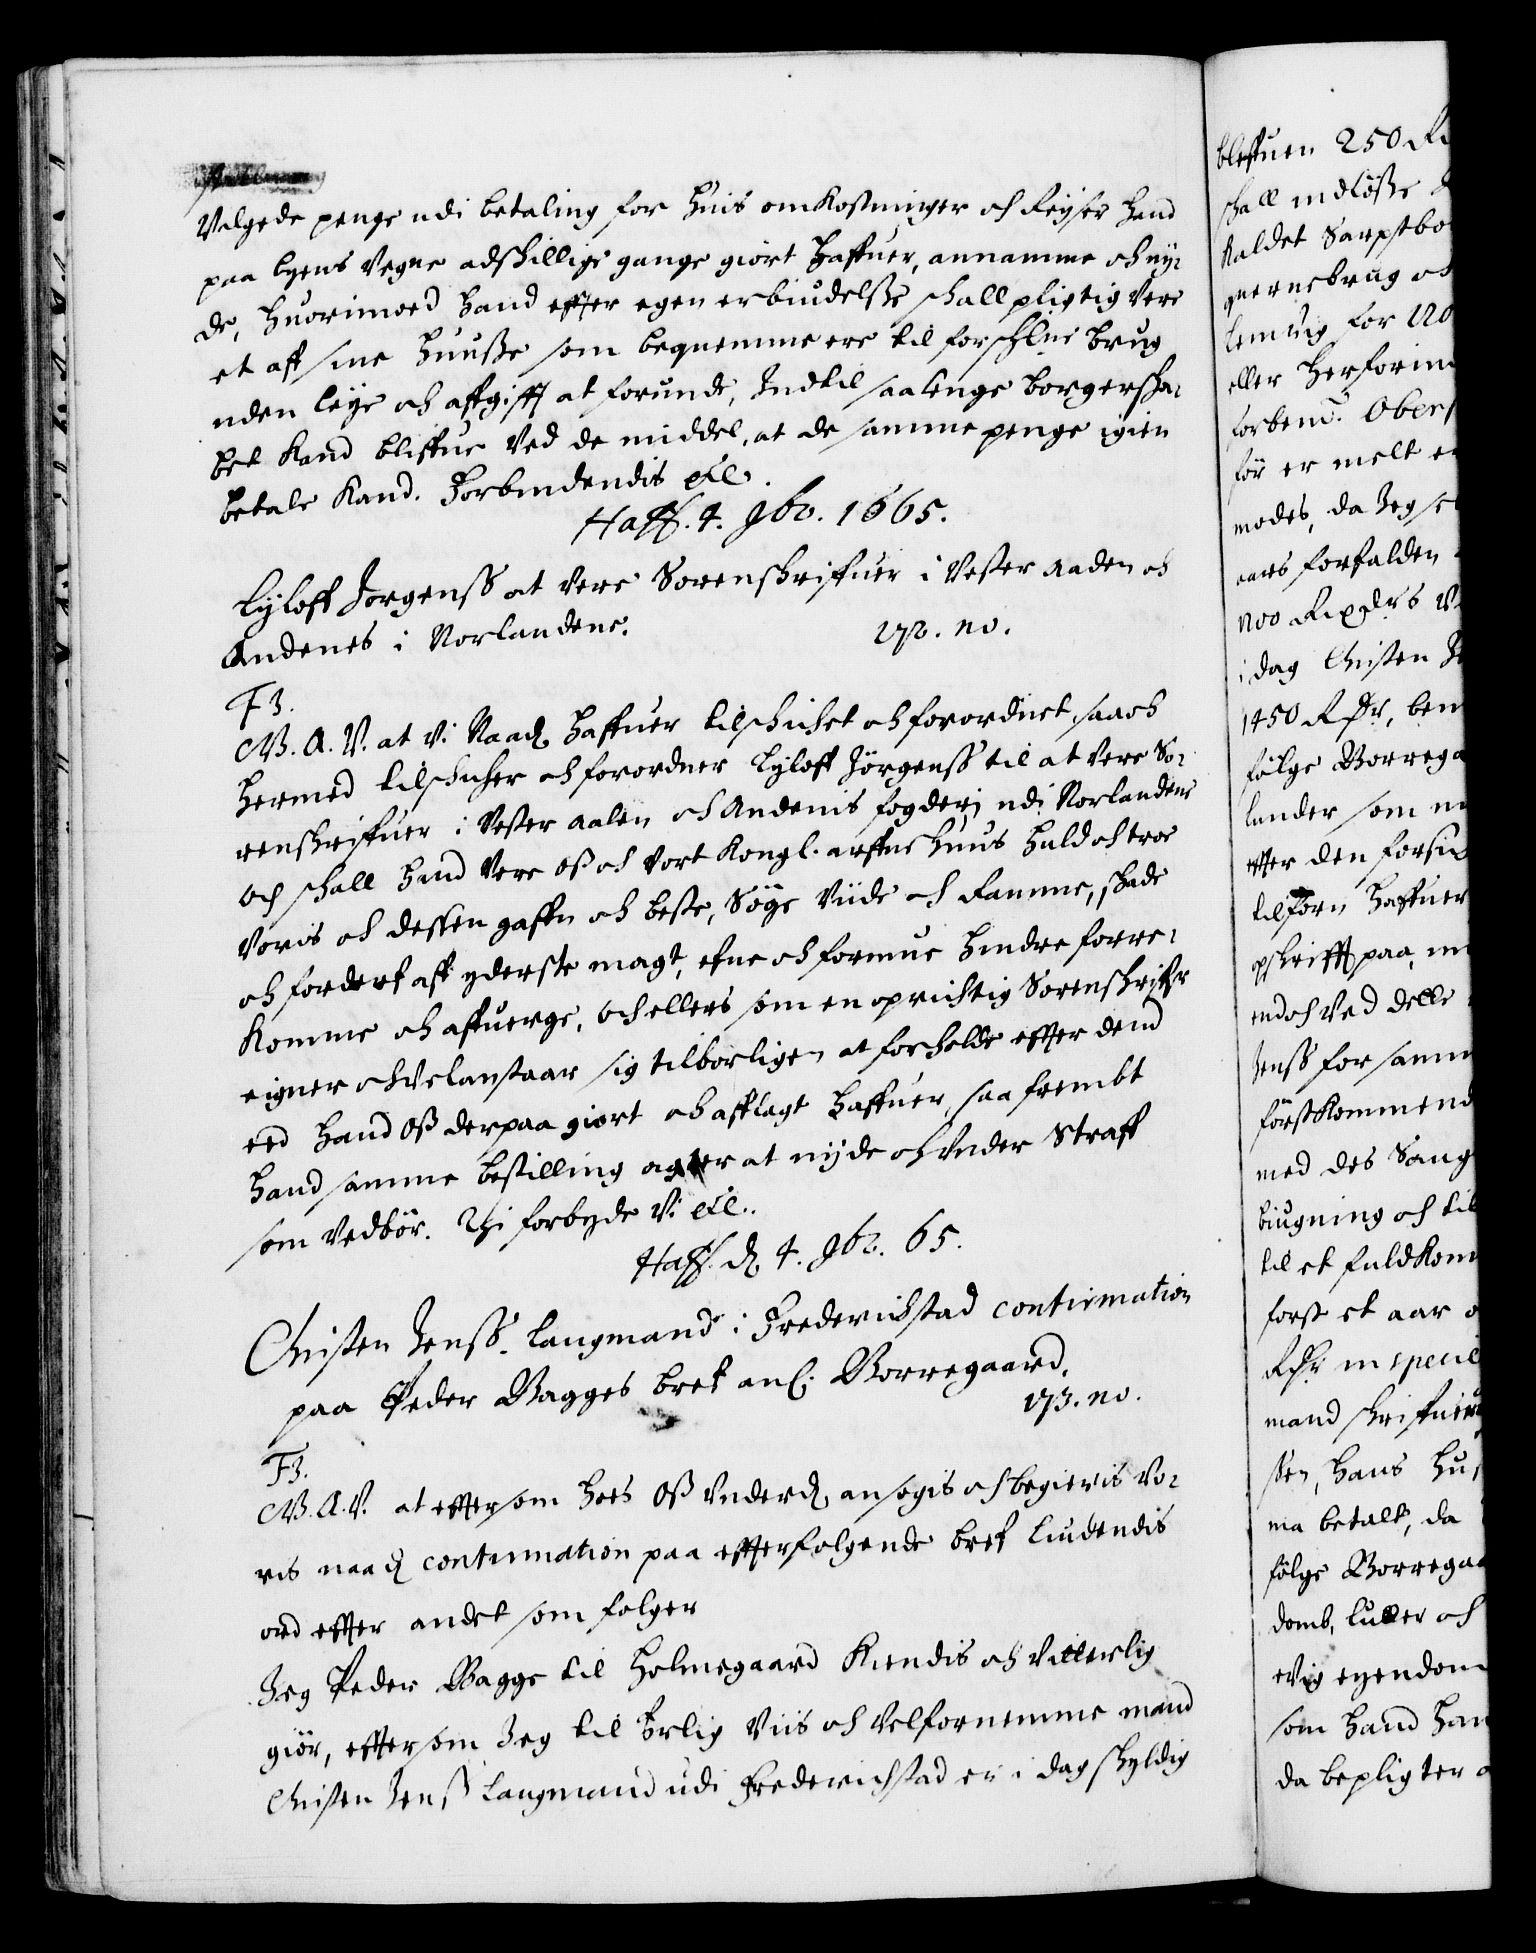 Valgede penge udi betaling for huis omkostninger och Reyser hand
paa byens vegne adskillige gange giort haffuer, annamme och ny-
de, huorimoed hand effter egen erbiudelsse schall pligtig vere
et aff sine huusse som beqvemme ere til forschlne brug
uden leye och affgifft at forunde, Indtil saalenge borgerska-
bet kand bliffue ved de middel, at de samme penge igien
betale kand. Forbindendis etc.
Haff. 4. 9br. 1665.
Lyloff Jorgenss at vere Sorenskriffuer i Vester Aalen och
Andenes i Norlandene.
172. no.
F3.
G. A. V. at Vi Naadl haffuer tilschichet och forordnet, saa och
hermed tilschicher och forordner Lyloff Jörgenss til at vere So-
renskriffuer i Vester Aalen och Andenis fogderj udi Norlandene
och schall hand vere oss och vort kongl. arffue huus huld och troe
voris och dessen gaffn och beste, Söge viide och Ramme, skade
och forderf aff yderste magt, efne och formue hindre forre-
komme och affuerge, och ellers som en oprichtig Sorenskrifr
eigner och velanstaar sig tilborligen at forholde effter dend
eed hand oss derpaa giort och afflagt haffuer, saa frembt
hand samme bestilling agter at nyde och under Straff
som vedbör. Thi forbyde Vi etc.
Haff. d 4. 9br. 65.
Christen Jenss. Langmand i Frederichstad confirmation
paa Peder Bagges bref anl. Borregaard.
173. no.
F3.
G. A. V. at effter som hoes oss underdl ansogis och begieris Vo-
ris naadl confirmation paa effterfolgende bref liudendis
ord effter andet som folger
Jeg Peder Bagge til Holmegaard kiendis och vitterlig
giör, effter som Jeg til Erlig viis och velfornemme mand
Christen Jenss Langmand udi Frederichstad er i dag skyldig
bleffuen 250 R
schall indlösse
kaldet Sarpsbo
qvernebrug och
lemvig for
eller herforin
forbem. Obers
för er melt
modes, da Jeg
aars forfalden
i dag Christen
1450 Rdr, ben
fölge Borrega
lander som
effter den forsi
tilforn haffuer
opskrifft paa,
endoch ved delle
Jenss for samm
förstkommend
med des Saug
biugning och til
til et fuldkom
först et aar
Rdr in specie
mand skriffuer
sken, hans
ma betalt, da
fölge Borregaa
domb, lutter och
evig eyendom
som hand
da bepligter